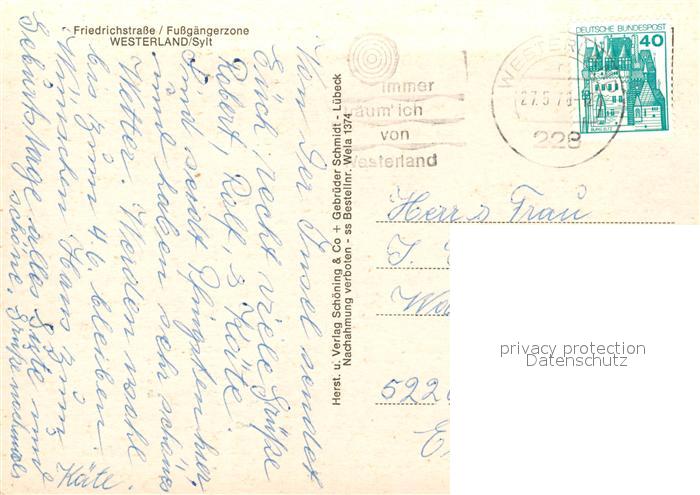 Friedrichstraße / Fußgängerzone
WESTERLAND/Sylt
Von der Insel sendet
Euch recht viele Grüße
Robert, Rolf, & Käte.
Sind seidt Pfingsten hier
und haben sehr schönes
Wetter. Werden wohl
bis zum 4.6. bleiben.
Wünschen Hans zum
Geburtstage alles Gute und
schöne Grüße nochmals
Käte.
Herst. u. Verlag Schöning & Co + Gebrüder Schmidt - Lübeck
Nachahmung verboten - ss Bestellnr. Wela 1374
immer
träum' ich
von
Westerland
WESTERLAND
27.5.7
228
DEUTSCHE BUNDESPOST
40
BURG ELTZ
Herr u Frau
5226
privacy protection
Datenschutz